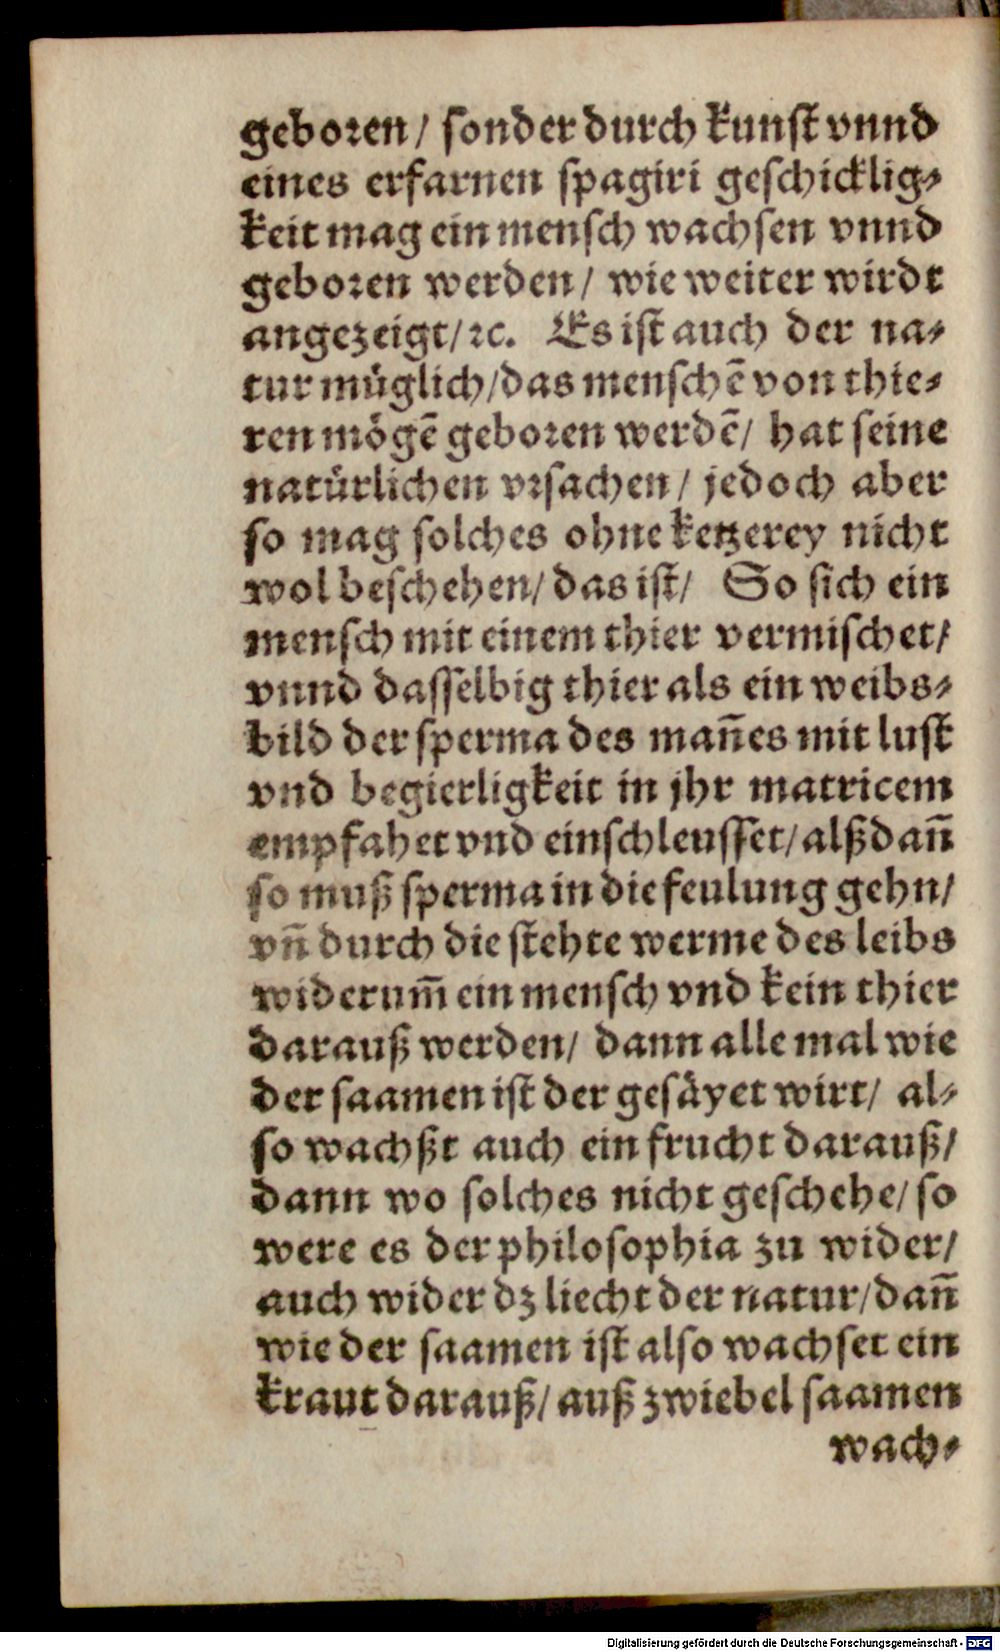 geboren/ sonder durch kunst vnnd
eines erfarnen spagiri geschicklig-
keit mag ein mensch wachsen vnnd
geboren werden/ wie weiter wirdt
angezeigt/ꝛc. Es ist auch der na-
tur müglich/das menschē von thie-
ren mögē geboren werdē/ hat seine
natürlichen vrsachen/ jedoch aber
so mag solches ohne ketzerey nicht
wol beschehen/das ist/ So sich ein
mensch mit einem thier vermischet/
vnnd dasselbig thier als ein weibs-
bild der sperma des mañes mit lust
vnd begierligkeit in jhr matricem
empfahet vnd einschleusset/alßdañ
so muß sperma in die feulung gehn/
vñ durch die stehte werme des leibs
widerum̄ ein mensch vnd kein thier
darauß werden/ dann alle mal wie
der saamen ist der gesäyet wirt/ al-
so wachßt auch ein frucht darauß/
dann wo solches nicht geschehe/so
were es der philosophia zu wider/
auch wider dz liecht der natur/dañ
wie der saamen ist also wachset ein
kraut darauß/auß zwiebel saamen
wach-
Digitalisierung gefördert durch die Deutsche Forschungsgemeinschaft - DFG